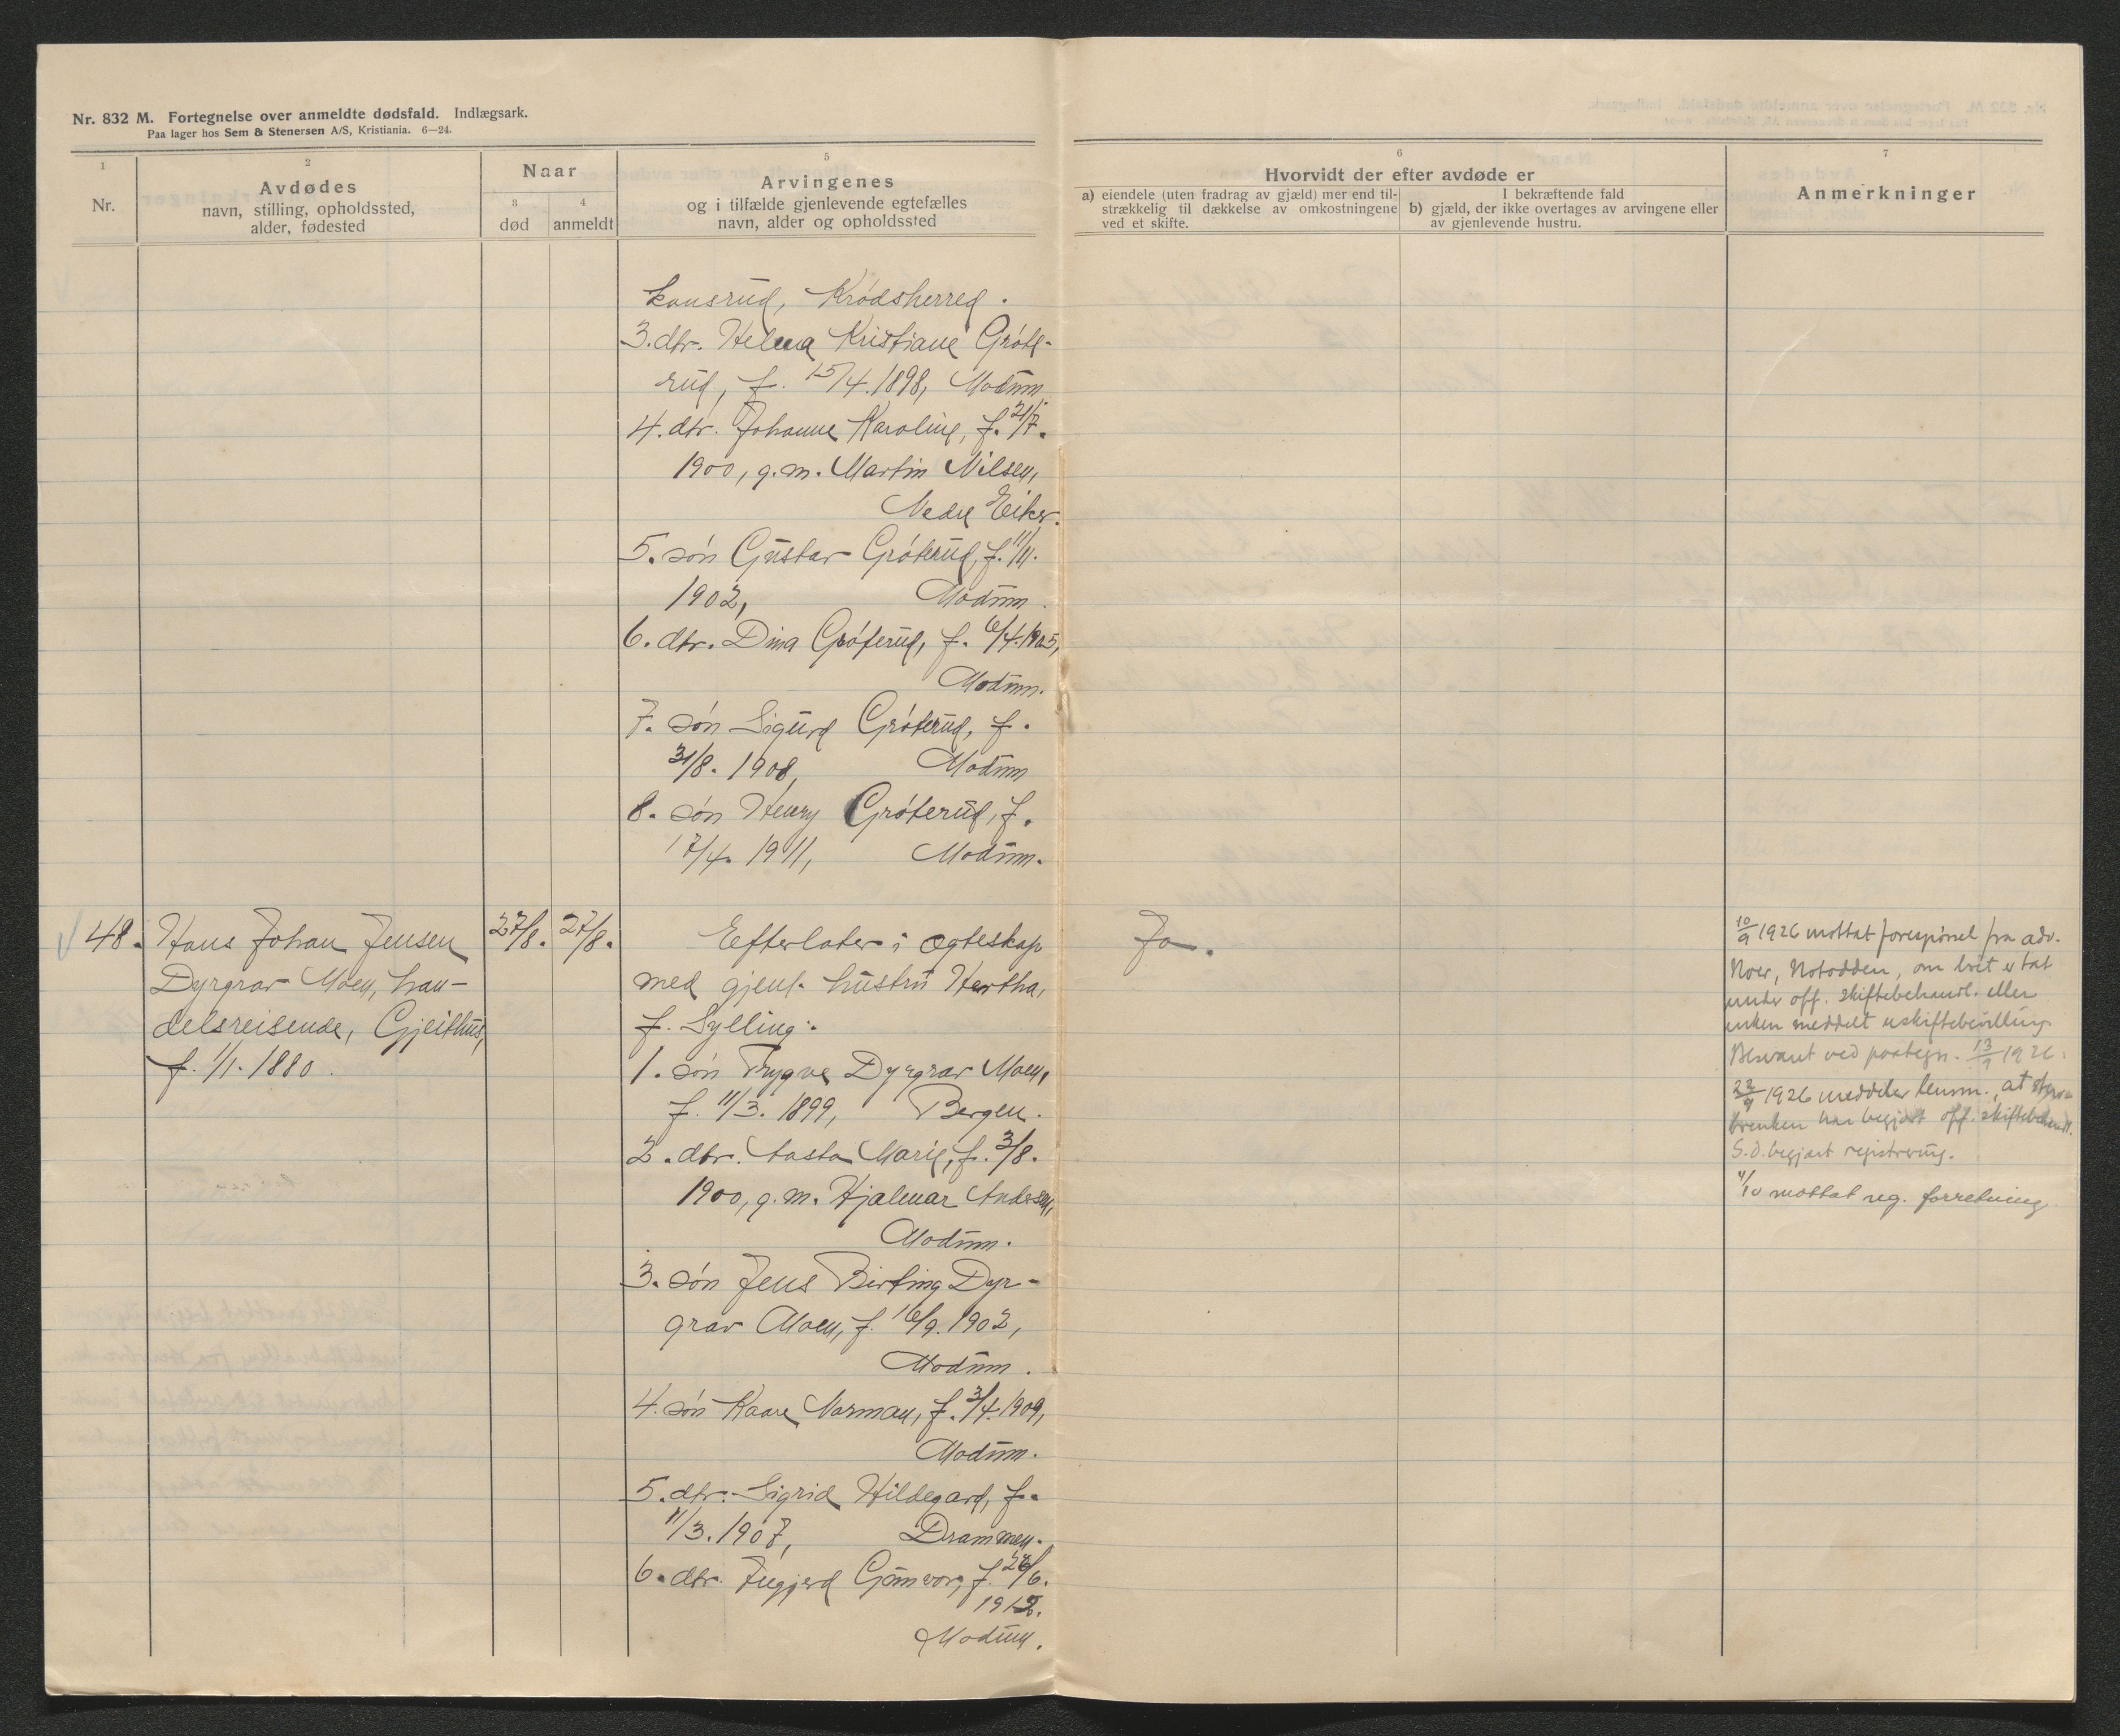 Nr. 832 M. Fortegnelse over anmeldte dødsfald. Indlægsark.
Paa lager hos Sem & Stenersen A/S, Kristiania. 6—24.
1
Nr.
2
Avdødes
navn, stilling, opholdssted,
alder, fødested
Naar
3
død
4
anmeldt
5
Arvingenes
og i tilfælde gjenlevende egtefælles
navn, alder og opholdssted
6
Hvorvidt der efter avdøde er
a) eiendele (uten fradrag av gjæld) mer end til-
strækkelig til dækkelse av omkostningene
ved et skifte.
I bekræftende fald
b) gjæld, der ikke overtages av arvingene eller
av gjenlevende hustru.
7
Anmerkninger
kansrud, Krødsherred.
3. dtr. Helma Kristiane Grøte-
rud, f. 15/4. 1898, Modum.
4. dtr. Johanne Karoline, f. 21/7.
1900, g.m. Martin Nilsen,
Nedre Eiker.
5. søn Gustav Grøterud, f. 11/11.
1902, Modum.
6. dtr. Dina Grøterud, f. 6/4. 1905,
Modum.
7. søn Sigurd Grøterud, f.
31/8. 1908, Modum
8. søn Henry Grøterud, f.
17/4. 1911, Modum.
48. Hans Johan Jensen
Dyrgrav Moen, han-
delsreisende, Gjeithus,
f. 1/1. 1880.
27/8. 27/8.
Efterlater i egteskap
med gjenl. hustru Hertha,
f. Sylling:
1. søn Trygve Dyrgrav Moen,
f. 11/3. 1899, Bergen.
2. dtr. Aasta Marie, f. 3/8.
1900, g.m. Hjalmar Andersen,
Modum.
3. søn Jens Birting Dyr-
grav Moen, f. 16/9. 1902,
Modum.
4. søn Kaare Norman, f. 3/4. 1909,
Modum.
5. dtr. Sigrid Hildegard, f.
11/3. 1907, Drammen.
6. dtr. Ingjerd Gunvor, f. 24/6.
1912.
Modum.
Ja.
10/9 1926 mottat forespørsel fra adv.
Noer, Notodden, om boet er tat
under off. skiftebehandl. eller
enken meddelt uskiftebevilling
Besvaret ved paategn. 13/9 1926.
23/9 1926 meddeler lensm., at
enken har begjært off. skiftebehandl.
S.d. begjært registrering.
4/10 mottat reg. forretning